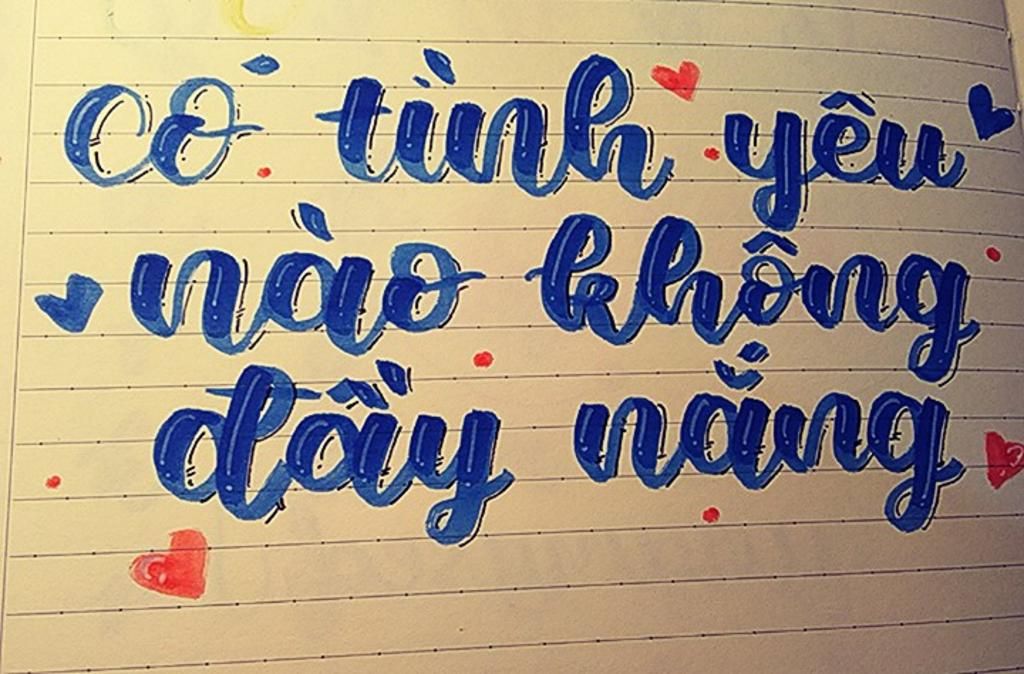 có tình yêu
nào không
đầy nắng